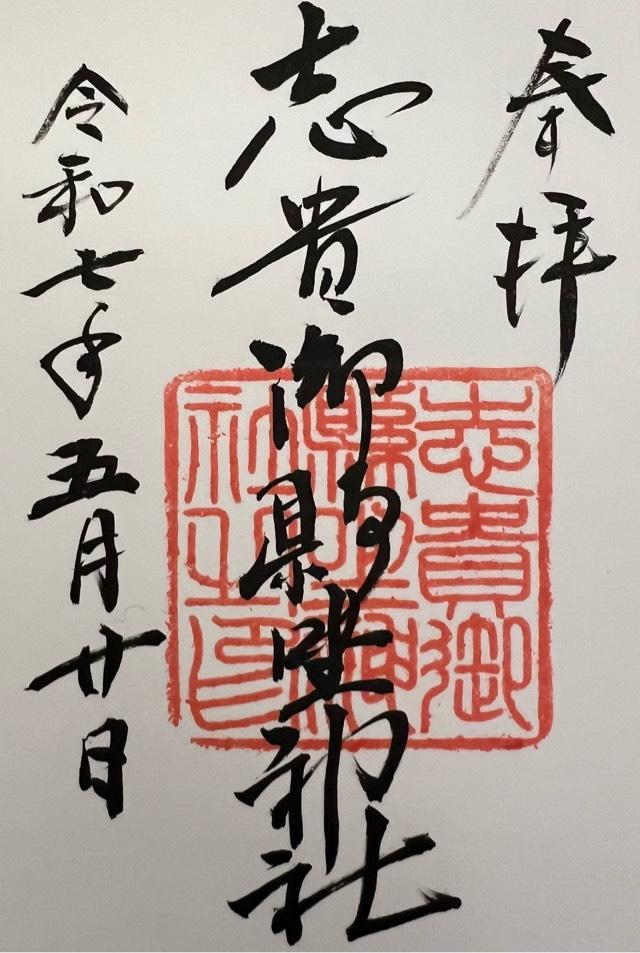 奉拝
志貴御縣坐神社
令和七年五月廿日
志貴御
縣坐神
社之印